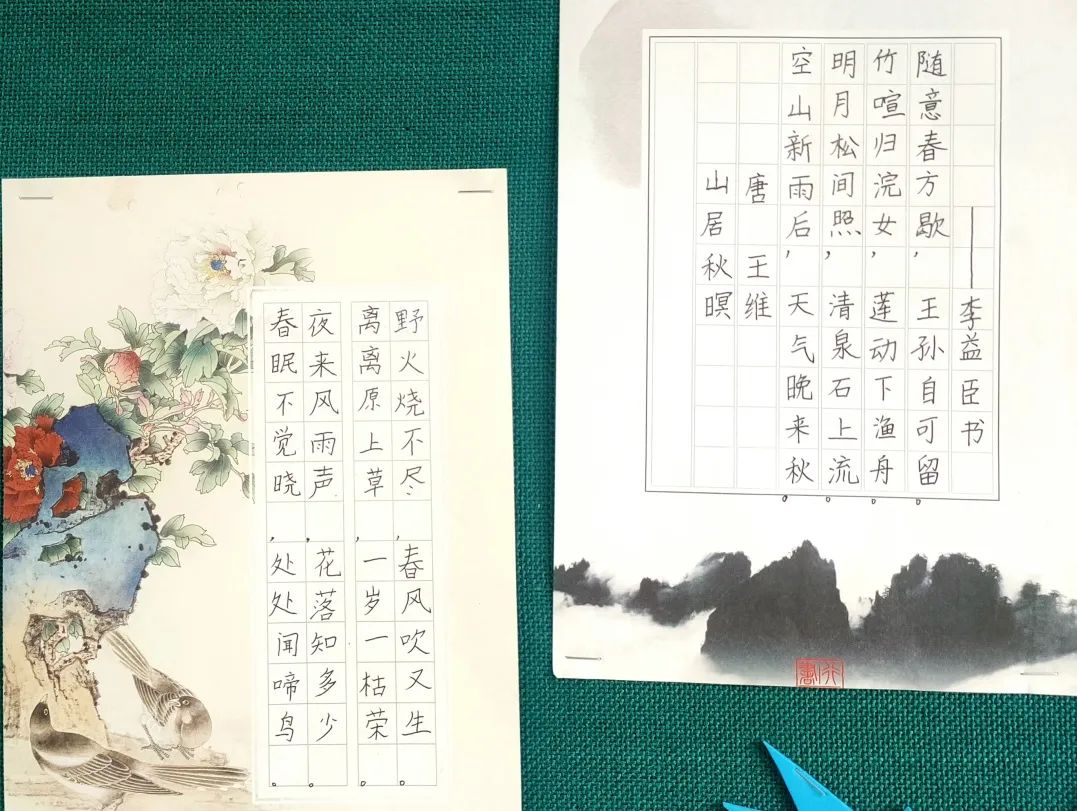 春眠不觉晓，处处闻啼鸟。
夜来风雨声，花落知多少。
离离原上草，一岁一枯荣。
野火烧不尽，春风吹又生。
山居秋暝
唐 王维
空山新雨后，天气晚来秋。
明月松间照，清泉石上流。
竹喧归浣女，莲动下渔舟。
随意春方歇，王孙自可留。
——李益臣书